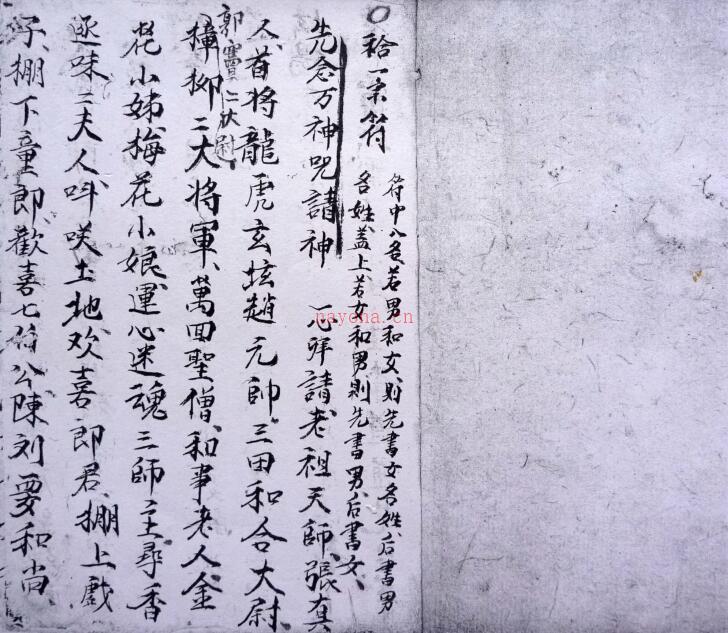 袷一宗符
符中入名若男和女則先書女名姓后書男
名姓盖上若女和男則先書男后書女
先念万神咒請神　一心拜請老祖天師張真
人首将龍虎玄坛趙元帥三田和合大尉
郭竇二状尉
獐柳二大将軍萬回聖僧和事老人金
花小姊梅花小娘運心迷魂三師主尋香
逐味二夫人呌咲土地欢喜郎君棚上戲
子棚下童郎歡喜七伯公陳刘要和尚
nayona.cn